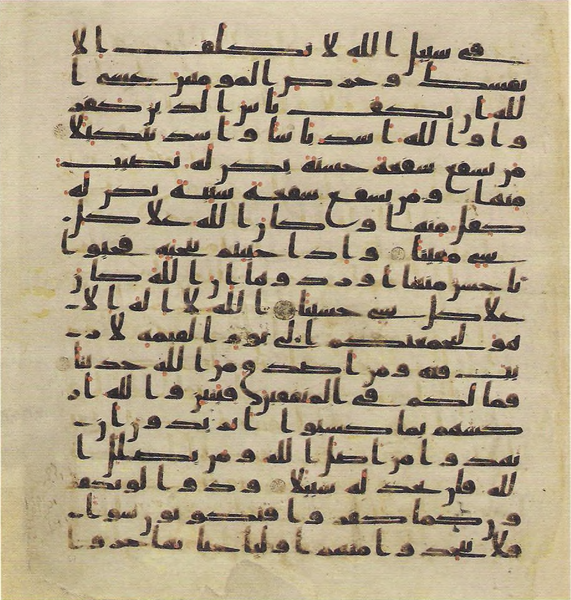 في سبيل الله لا تكلف الا
نفسك وحرض المومنين عسى ا
لله ان يكف باس الذين كفر
وا والله اشد باسا واشد تنكيلا
من يشفع شفعة حسنة يكن له نصيب
منها ومن يشفع شفعة سيئة يكن له
كفل منها وكان الله على كل
شي مقيتا واذا حييتم بتحية فحيوا
باحسن منها او ردوها ان الله كان
على كل شي حسيبا الله لا اله الا
هو ليجمعنكم الى يوم القيمة لا ر
يب فيه ومن اصدق من الله حديثا
فما لكم في المنفقين فئتين والله ار
كسهم بما كسبوا اتريدون ان
تهدوا من اضل الله ومن يضلل ا
لله فلن تجد له سبيلا ودوا لو تكفر
ون كما كفروا فتكونون سوا
فلا تتخذوا منهم اوليا حتى يهاجروا